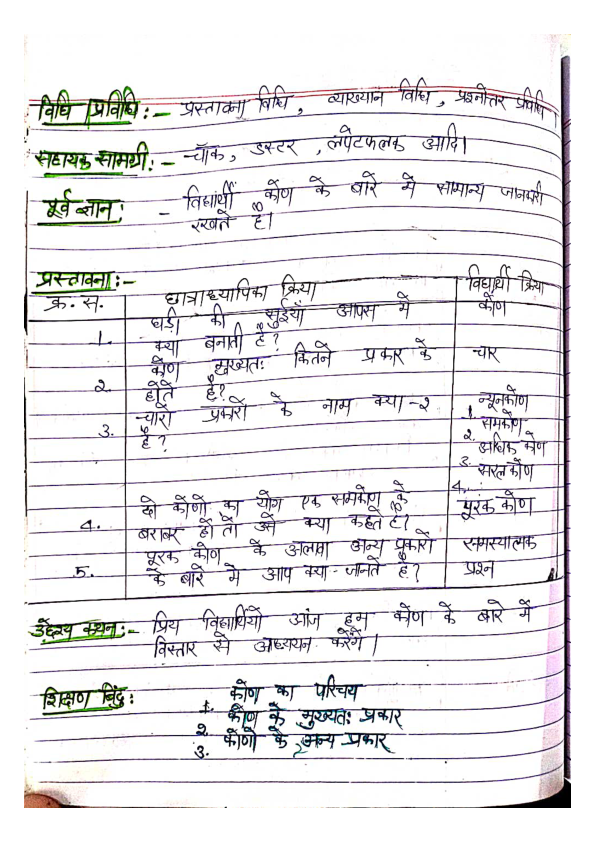 विधि/प्रविधि:- प्रस्तावना विधि, व्याख्यान विधि, प्रश्नोत्तर प्रविधि।
सहायक सामग्री:- चॉक, डस्टर, लपेटफलक आदि।
पूर्व ज्ञान: - विद्यार्थी कोण के बारे में सामान्य जानकारी
रखते हैं।
प्रस्तावना:-
क्र. स. छात्राध्यापिका क्रिया विद्यार्थी क्रिया
1. घड़ी की सुईयाँ आपस में कोण
क्या बनाती हैं?
2. कोण मुख्यतः कितने प्रकार के चार
होते हैं?
3. चारों प्रकारों के नाम क्या-२ 1. न्यूनकोण
हैं? 2. समकोण
3. अधिक कोण
4. सरलकोण
4. दो कोणों का योग एक समकोण के पूरक कोण
बराबर हो तो उसे क्या कहते हैं?
5. पूरक कोण के अलावा अन्य प्रकारों समस्यात्मक
के बारे में आप क्या जानते हैं? प्रश्न
उद्देश्य कथन:- प्रिय विद्यार्थियों आज हम कोण के बारे में
विस्तार से अध्ययन करेंगे।
शिक्षण बिंदु: 1. कोण का परिचय
2. कोण के मुख्यतः प्रकार
3. कोणों के अन्य प्रकार